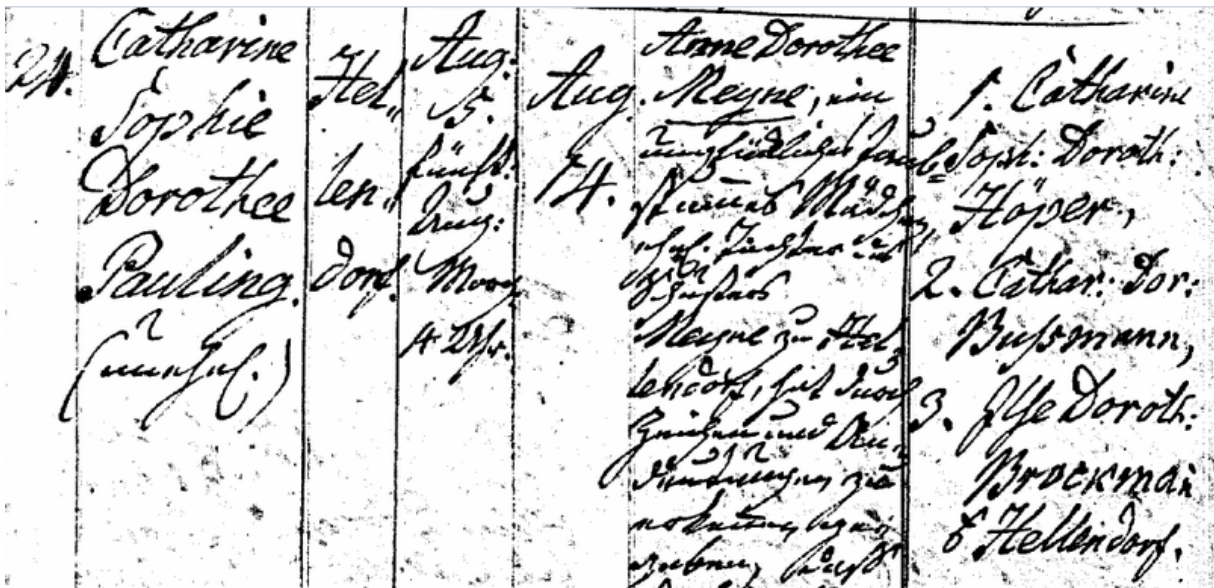 24.
Catharine
Sophie
Dorothee
Pauling.
(unehel.)
Hel„
len„
dorf.
Aug.
5.
fünft.
Aug:
Morg.
4 Uhr.
Aug.
14.
Anne Dorothee
Meyne, ein
taub=
stummes Mädchen,
ehel. Tochter des
Meyne zu Hel„
lendorf, hat durch
Zeichen und
zu
daß
1. Catharine
Soph: Doroth:
Höper,
2. Cathar: Dor:
Bußmann,
3. Ilse Doroth:
Brockman
Hellendorf.